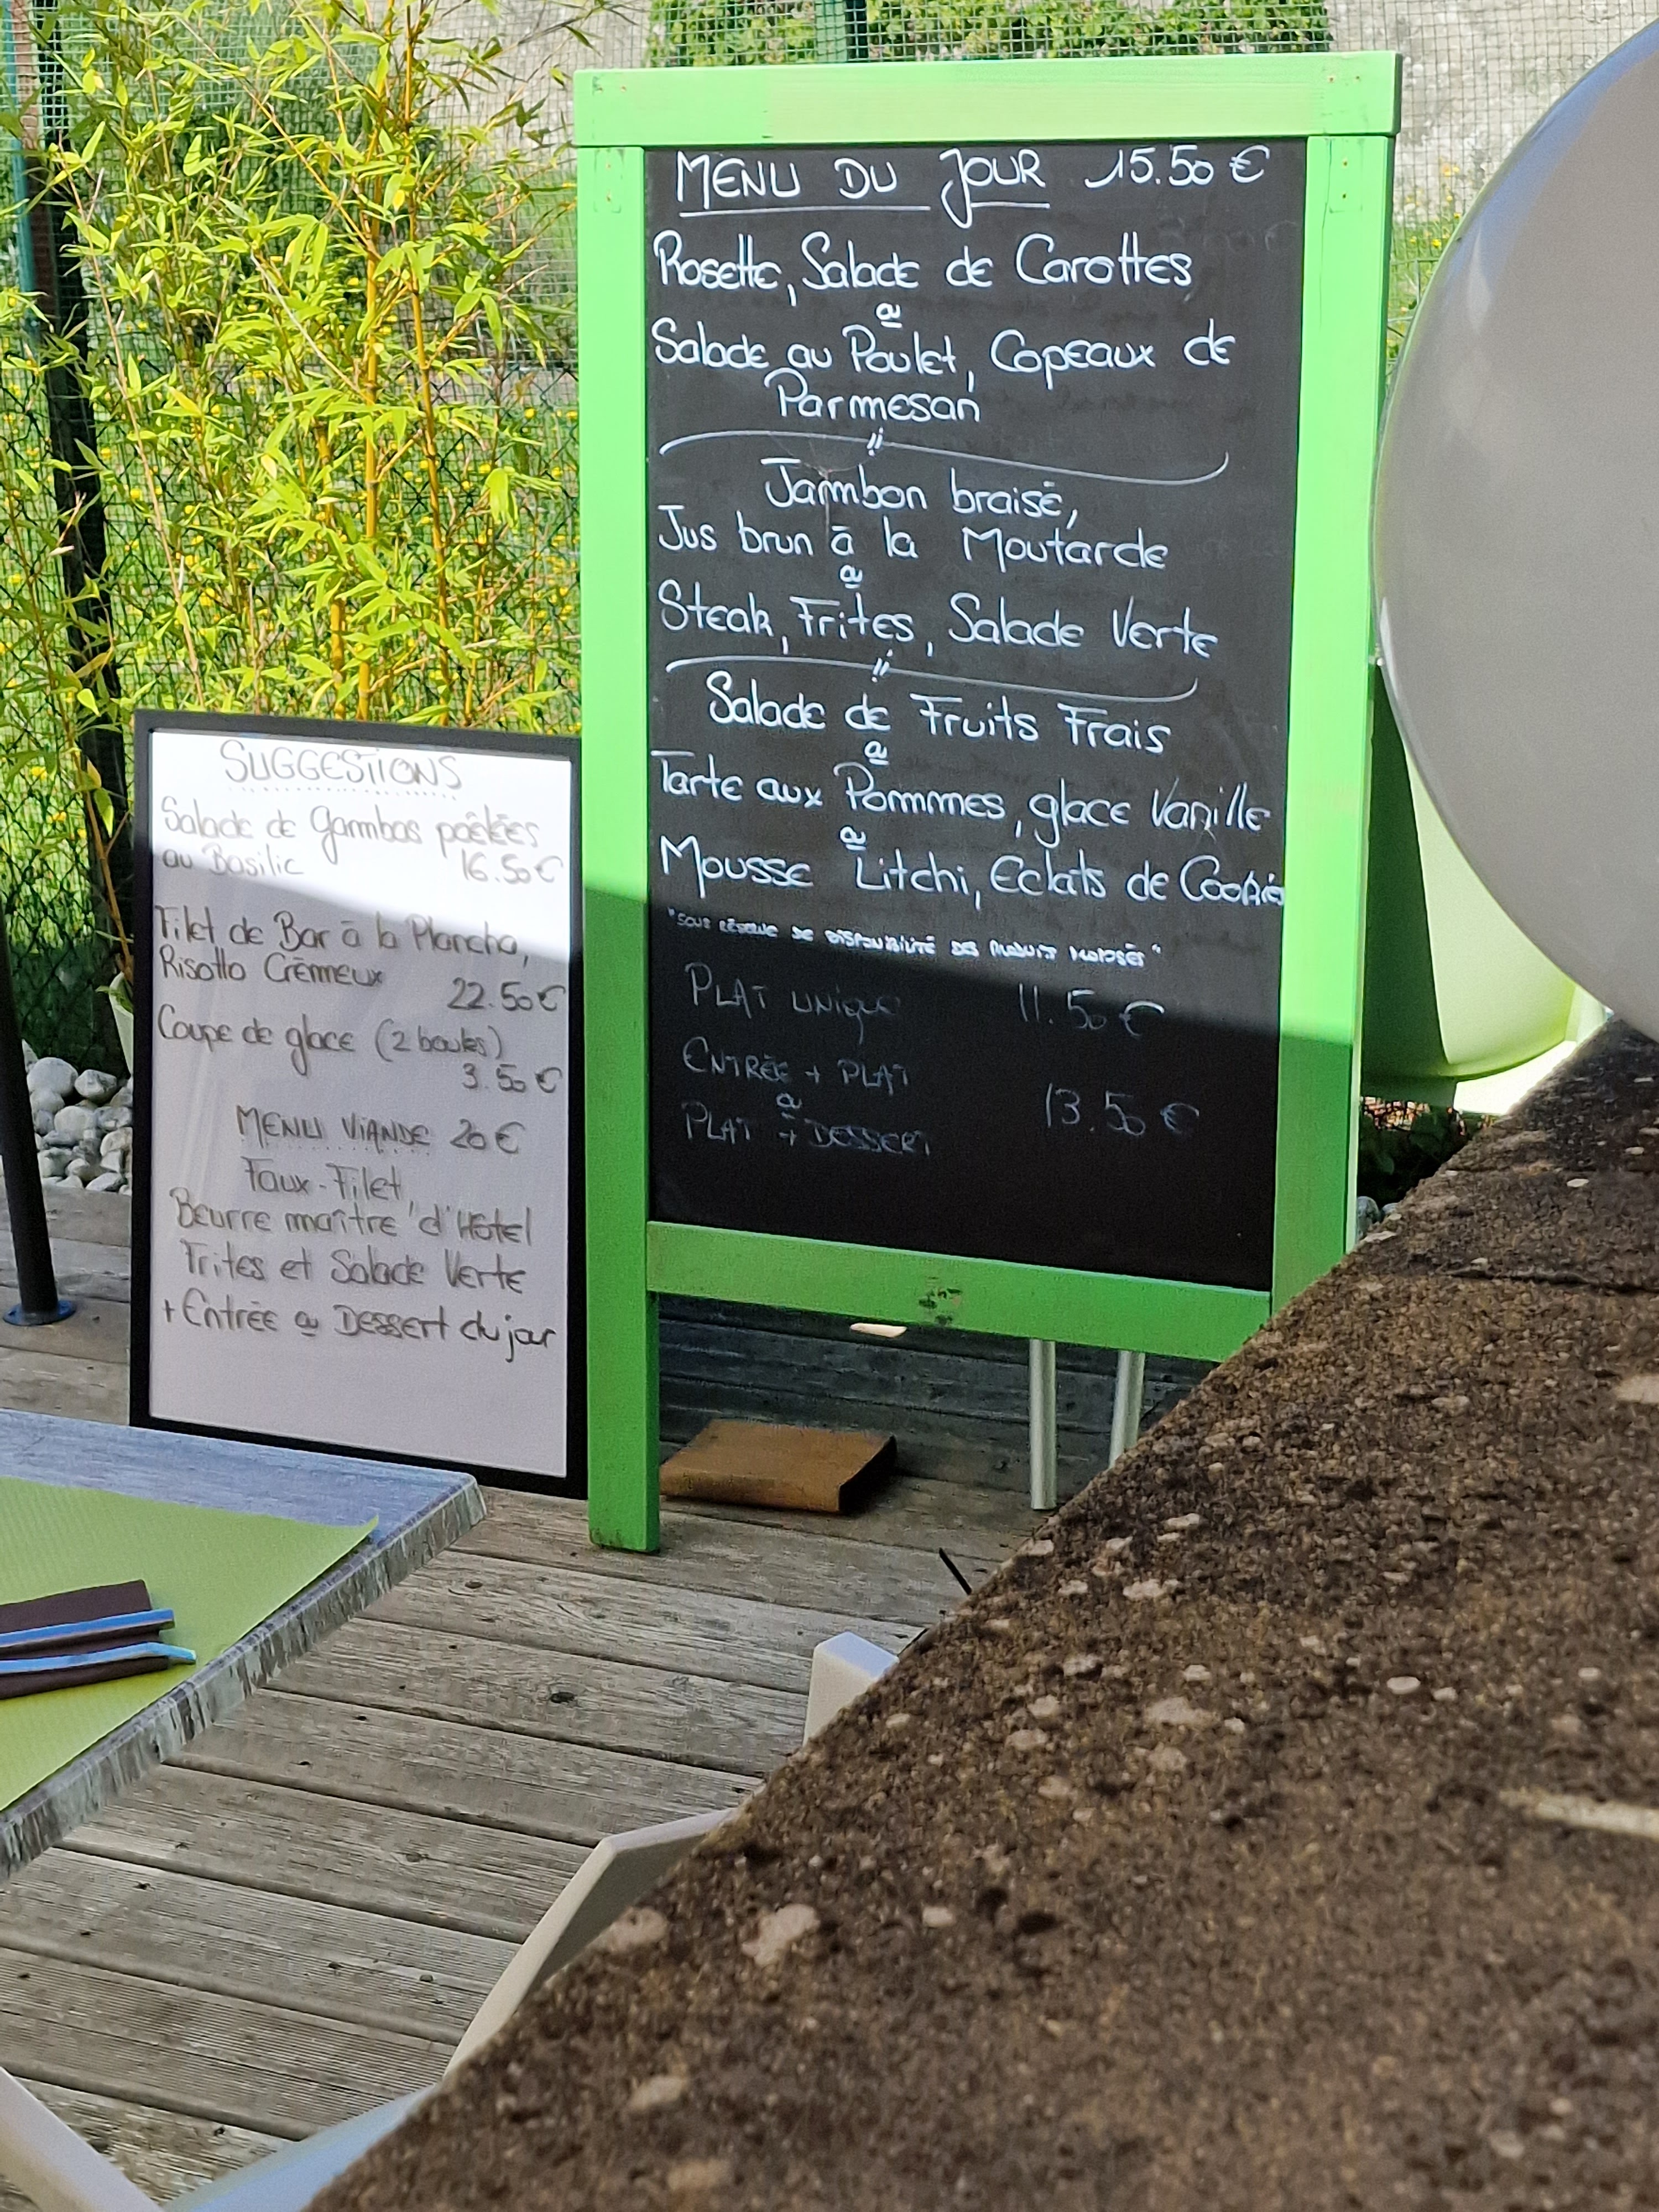 MENU DU JOUR 15.50 €
Rosette, Salade de Carottes
ou
Salade au Poulet, Copeaux de
Parmesan
Jambon braisé,
Jus brun à la Moutarde
ou
Steak, Frites, Salade Verte
Salade de Fruits Frais
ou
Tarte aux Pommes, glace Vanille
ou
Mousse Litchi, Eclats de Cookies
"SOUS RÉSERVE DE DISPONIBILITÉ DES PRODUIT PROPOSÉS"
PLAT UNIQUE 11.50 €
ENTRÉE + PLAT
ou 13.50 €
PLAT + DESSERT
SUGGESTIONS
Salade de Gambas poêlées
au Basilic 16.50 €
Filet de Bar à la Plancha,
Risotto Crémeux
22.50 €
Coupe de glace (2 boules)
3.50 €
MENU VIANDE 20 €
Faux-Filet
Beurre maître d'Hôtel
Frites et Salade Verte
+ Entrée ou DESSERT du jour